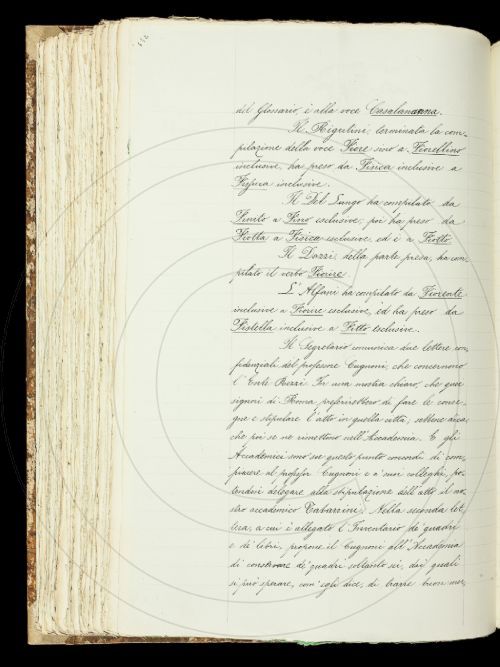 del Glossario, è alla voce Casalananna.
Il Rigutini, terminata la com-
pilazione della voce Fiore sino a Fiorellino
inclusive, ha preso da Fisica inclusive a
inclusive.
Il Del Lungo ha compilato da
Finito a Fino esclusive, poi ha preso da
Fiotta a Fisica esclusive, ed è a Fiotto.
Il Dazzi, della parte presa, ha com-
pilato il verbo Fiorire.
L'Alfani ha compilato da Fiorente
inclusive a Fiorire esclusive, ed ha preso da
Fistella inclusive a Fitto esclusive.
Il Segretario comunica due lettere con-
fidenziali del professore Cugnoni, che concernono
l'Ente Rezzi. In una mostra chiaro, che quei
signori di Roma preferirebbero di fare le conse-
gne e stipulare l'atto in quella città, sebbene
che poi se ne rimettono nell'Accademia. E gli
Accademici sono su questo punto concordi di com-
piacere al professor Cugnoni e a' suoi colleghi, po-
tendosi delegare alla stipulazione dell'atto il no-
stro accademico Tabarrini. Nella seconda let-
tera, a cui è allegato l'Inventario de' quadri
e de' libri, propone il Cugnoni all'Accademia
di conservare de' quadri soltanto sei, dai quali
si può sperare, com'egli dice, di trarre buon mer-